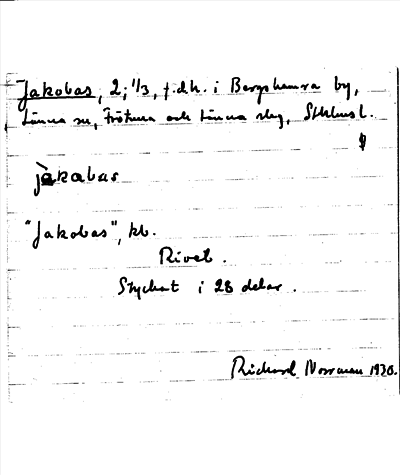 Jakobas, 2; 1/3, f.d.h. i Bergshamra by,
Länna sn, Frötuna och Länna skg, Sthlms l.
jàkabas
"Jakobas", kb.
Rivet.
Styckat i 28 delar.
Richard Norrman 1930.